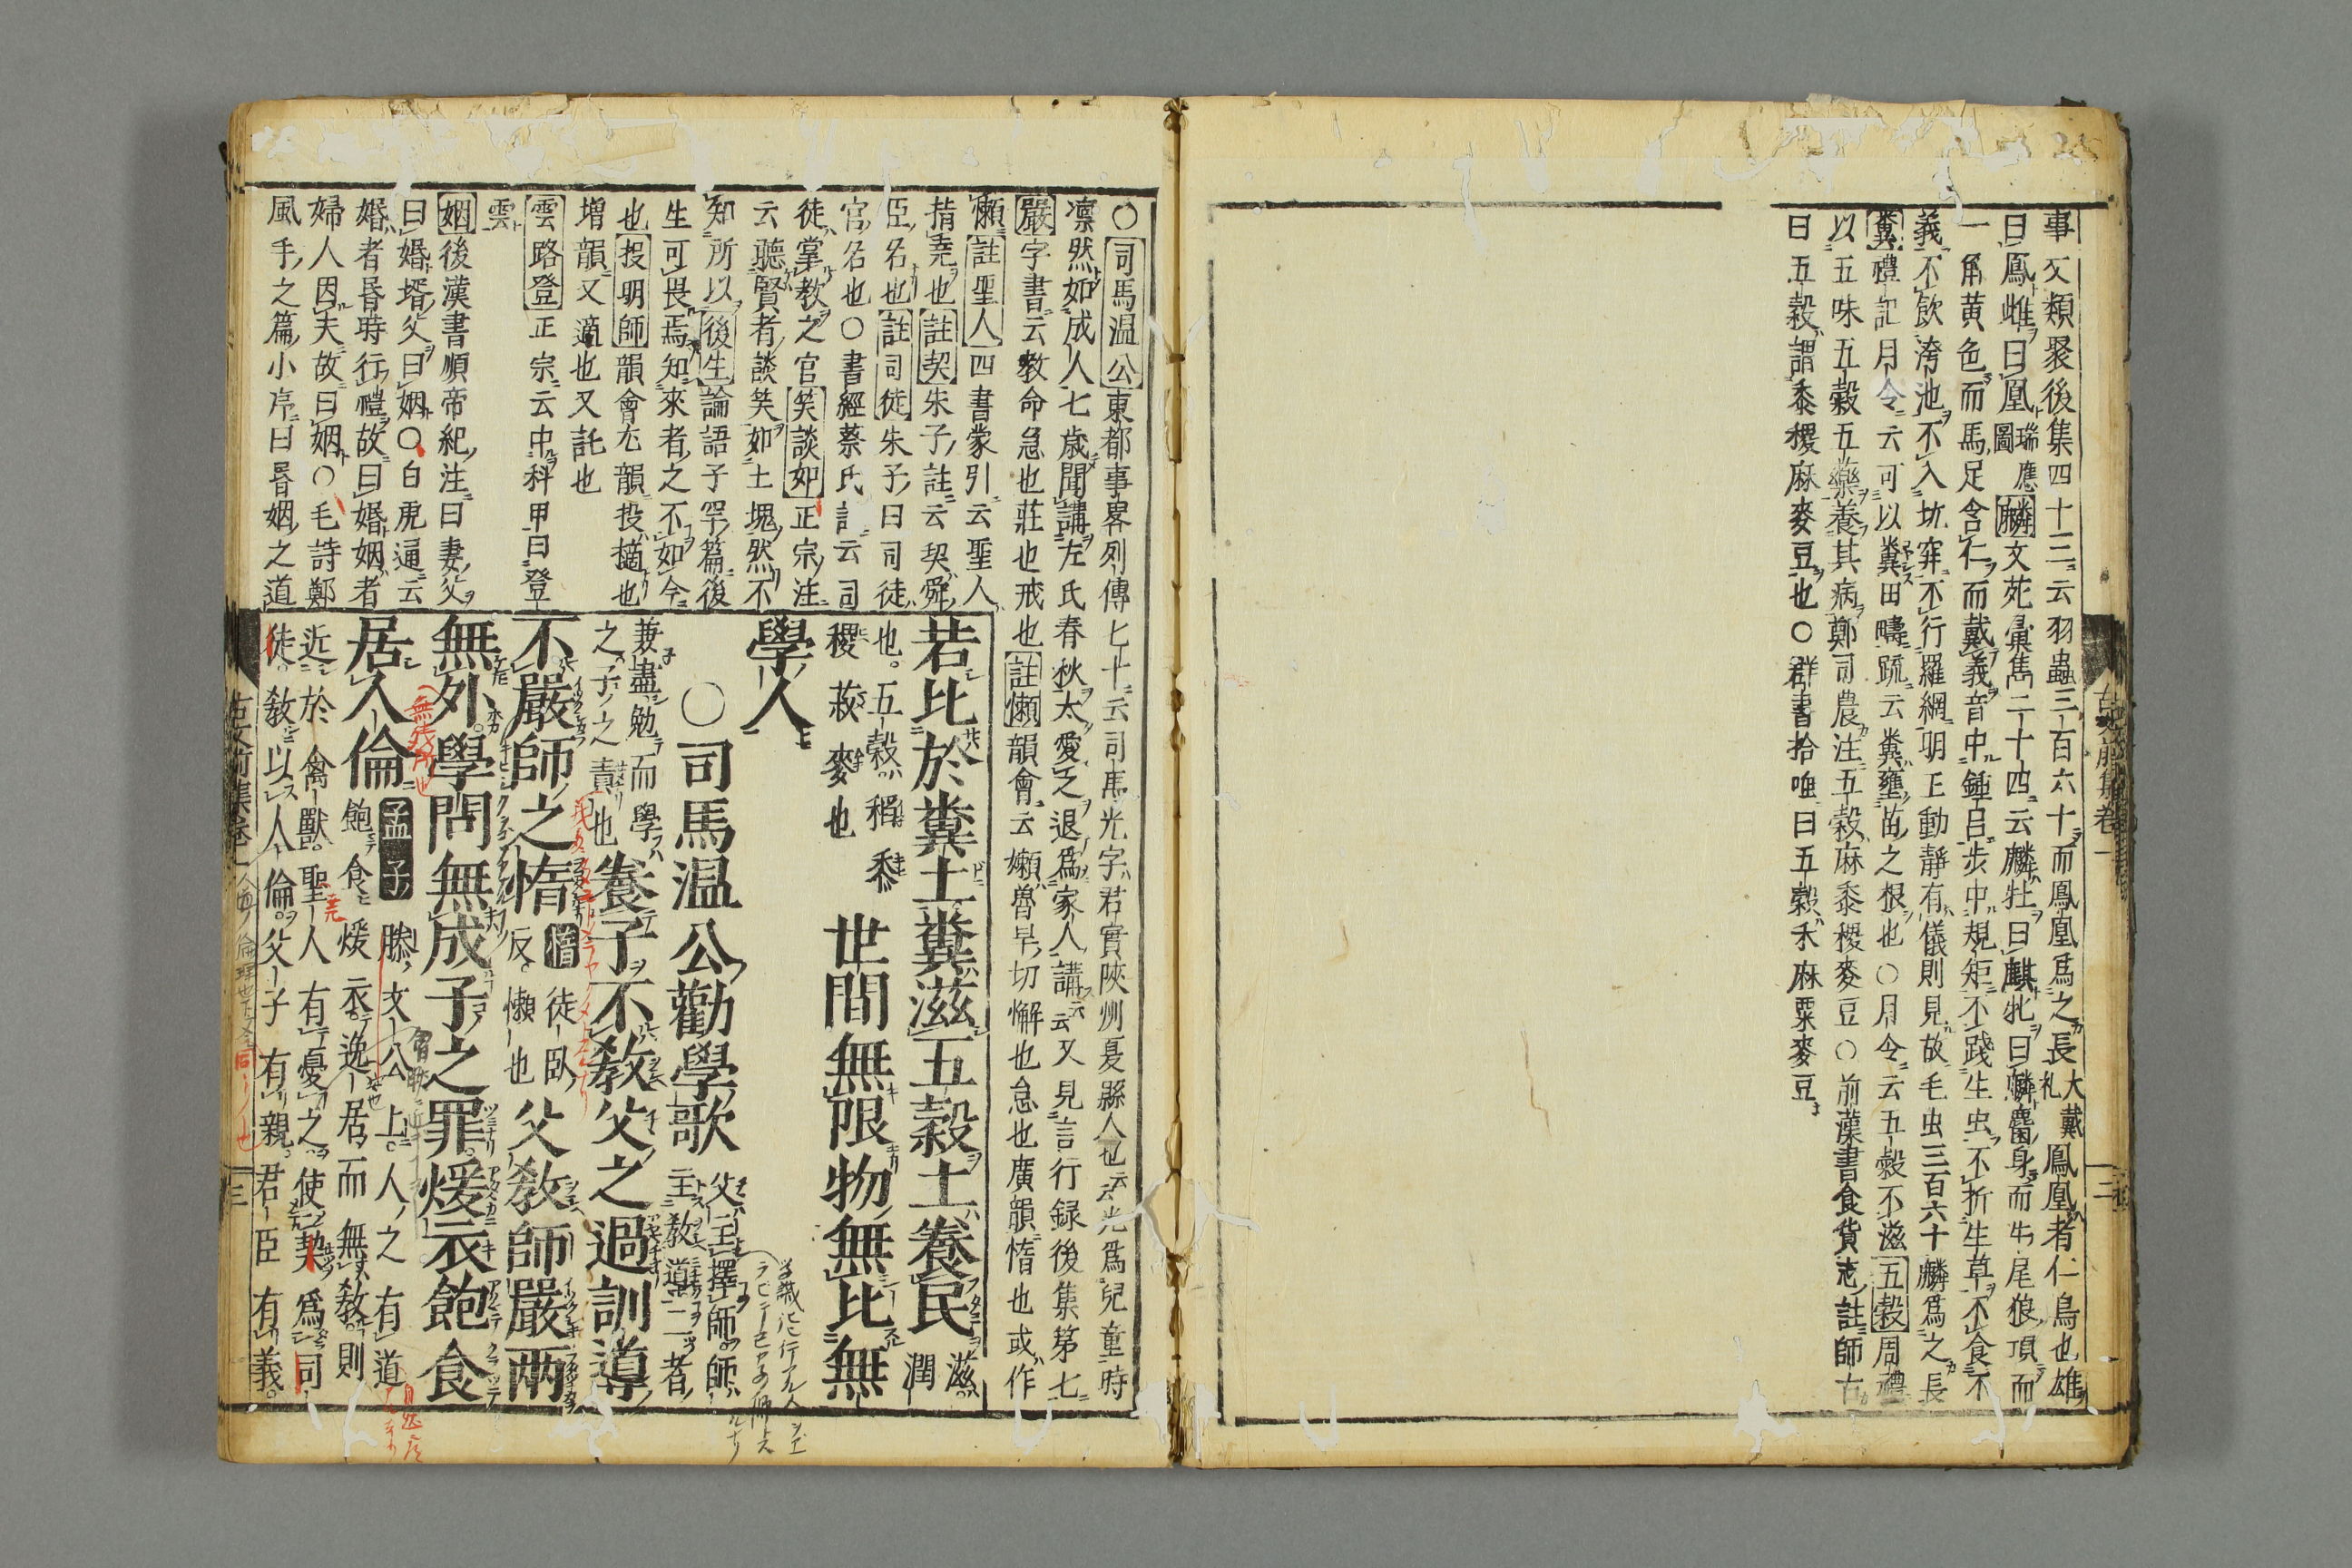 事文類聚後集四十三云羽蟲三百六十而鳳凰爲之長大戴礼鳳凰者仁鳥也雄
曰鳳雌曰凰瑞應圖麟文苑彙雋二十四云麟牡曰麒牝曰麟麕身而牛尾狼項而
一角黄色而馬足含仁而戴義音中鍾呂步中規矩不踐生虫不折生草不食不
義不飲洿池不入坑穽不行羅網明王動靜有儀則見故毛虫三百六十麟爲之長
糞禮記月令云可以糞田疇疏云糞壅苗之根也○月令云五穀不滋五穀周禮
以五味五穀五藥養其病鄭司農注五穀麻黍稷麥豆○前漢書食貨志註師古
曰五穀謂黍稷麻麥豆也○群書拾唾曰五穀禾麻粟麥豆
古文前集卷一
二
○司馬温公東都事畧列傳七十云司馬光字君實陜州夏縣人也云云光爲兒童時
凛然如成人七歳聞講左氏春秋大愛之退爲家人講云云又見言行録後集第七
嚴字書云教命急也莊也戒也註懶韻會云嬾魯旱切懈也怠也廣韻惰也或作
懶註聖人四書蒙引云聖人
指堯也註契朱子註云契舜
臣名也註司徒朱子曰司徒
官名也○書經蔡氏註云司
徒掌教之官笑談如正宗注
云聽賢者談笑如土塊然不
知所以後生論語子罕篇後
生可畏焉知來者之不如今
也投明師韻會尤韻投擿也
増韻又適也又託也
雲路登正宗云中科甲曰登
雲
姻後漢書順帝紀注曰妻父
曰婚壻父曰姻○白虎通云
婚者昏時行禮故曰婚姻者
婦人因夫故曰姻○毛詩鄭
風手之篇小序曰昏姻之道
若比於糞土糞滋五穀土養民滋潤
也五穀稻黍
稷菽麥也世間無限物無比無
學人
○司馬温公勸學歌父主擇師師主教道二者
兼盡勉而學
之子之責也養子不教父之過訓導
不嚴師之惰惰徒臥反懶也父教師嚴兩
無外學問無成子之罪煖衣飽食
居人倫孟子滕文公上人之有道
飽食煖衣逸居而無教則
近於禽獸聖人有憂之使契爲司
徒教以人倫父子有親君臣有義
古文前集卷一
三